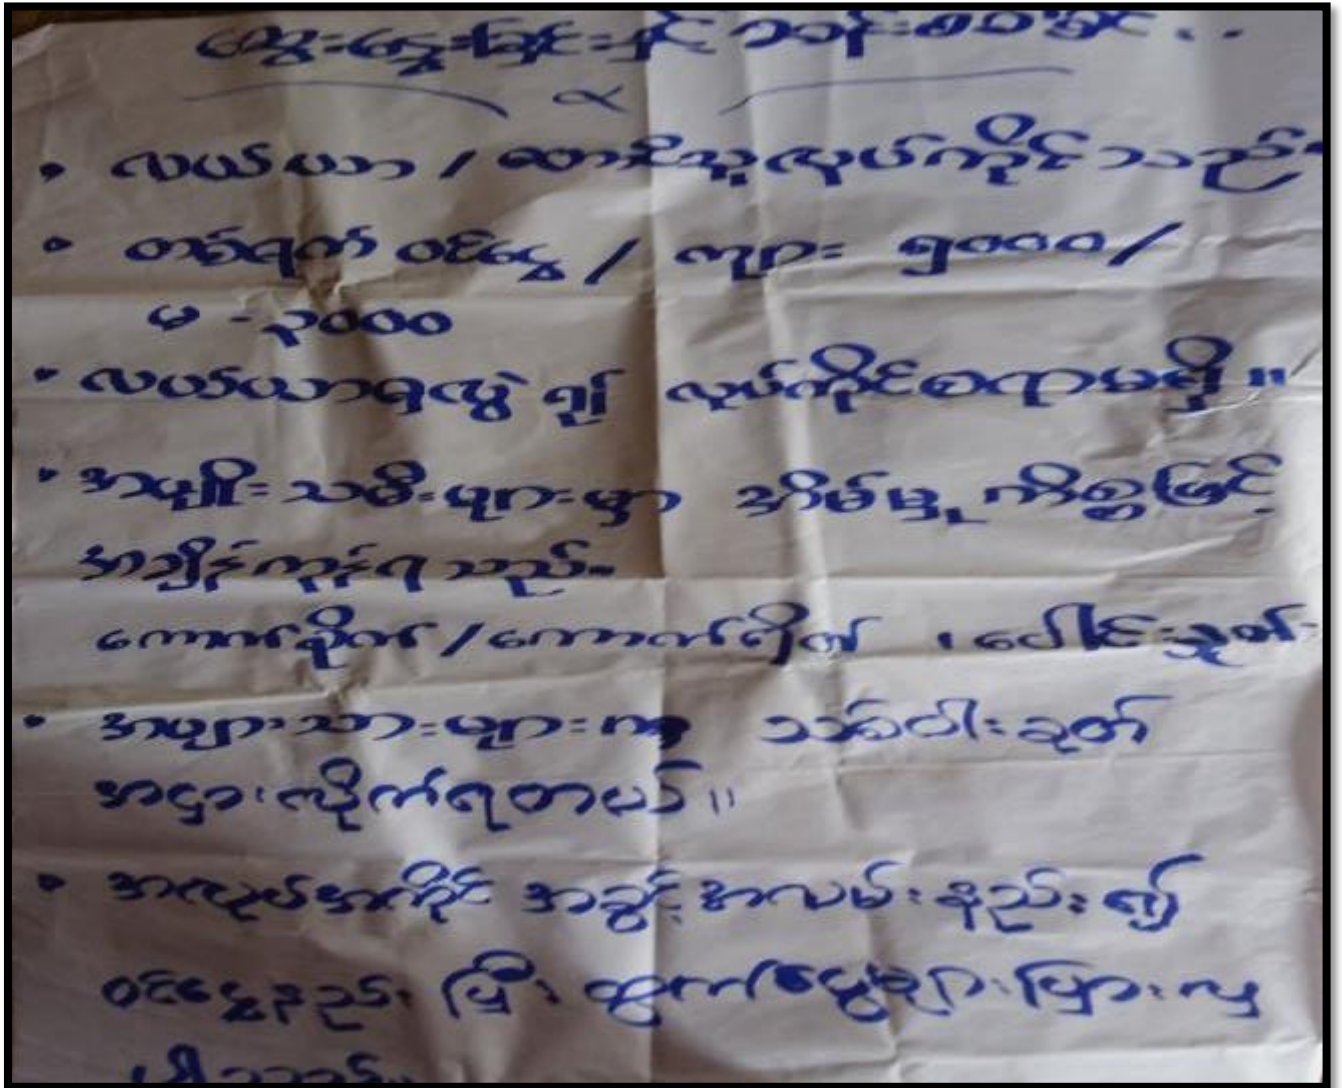 ဆွေးနွေးခြင်းနှင့်
• လယ်ယာ / တောင်သူလုပ်ကိုင်သည်
• တစ်ရက် ဝင်ငွေ / ကျား ၅၀၀၀/
မ - ၃၀၀၀
• လယ်ယာမှလွဲ၍ လုပ်ကိုင်စရာမရှိ။
• အမျိုးသမီးများမှာ အိမ်မှုကိစ္စဖြင့်
အချိန်ကုန်ရသည်။
ကောက်စိုက် / ကောက်ရိတ် ၊ ပေါင်းနှုတ်
• အမျာသားများက သစ်ဝါးခုတ်
အငှားလိုက်ရတယ်။
• အလုပ်အကိုင် အခွင့်အလမ်းနည်း၍
ဝင်ငွေနည်းပြီး ထွက်ငွေများပြားလျှ